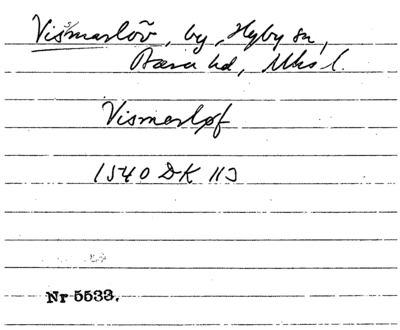 Vismarlöv, by, Hyby sn,
Bara hd, Mhs l.
Vismerløf
1540 DK 113
Nr 5533.